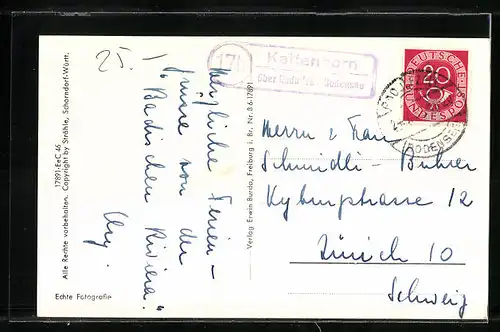 25. 1
(17b)
Kattenhorn
über Radolfzell - Bodensee
DEUTSCHE
20
BUNDESPOST
(BODENSEE)
Herzliche Ferien-
grüsse von der
"Badischen Riviera".
Herrn u Frau
Schmidli-Bührer
Kyburgstrasse 12
Zürich 10
Schweiz
17891-FeC 46
Alle Rechte vorbehalten. Copyright by Strähle, Schorndorf-Württ.
Echte Fotografie
Verlag Erwin Burda, Freiburg i. Br. Nr. 8.6.17891